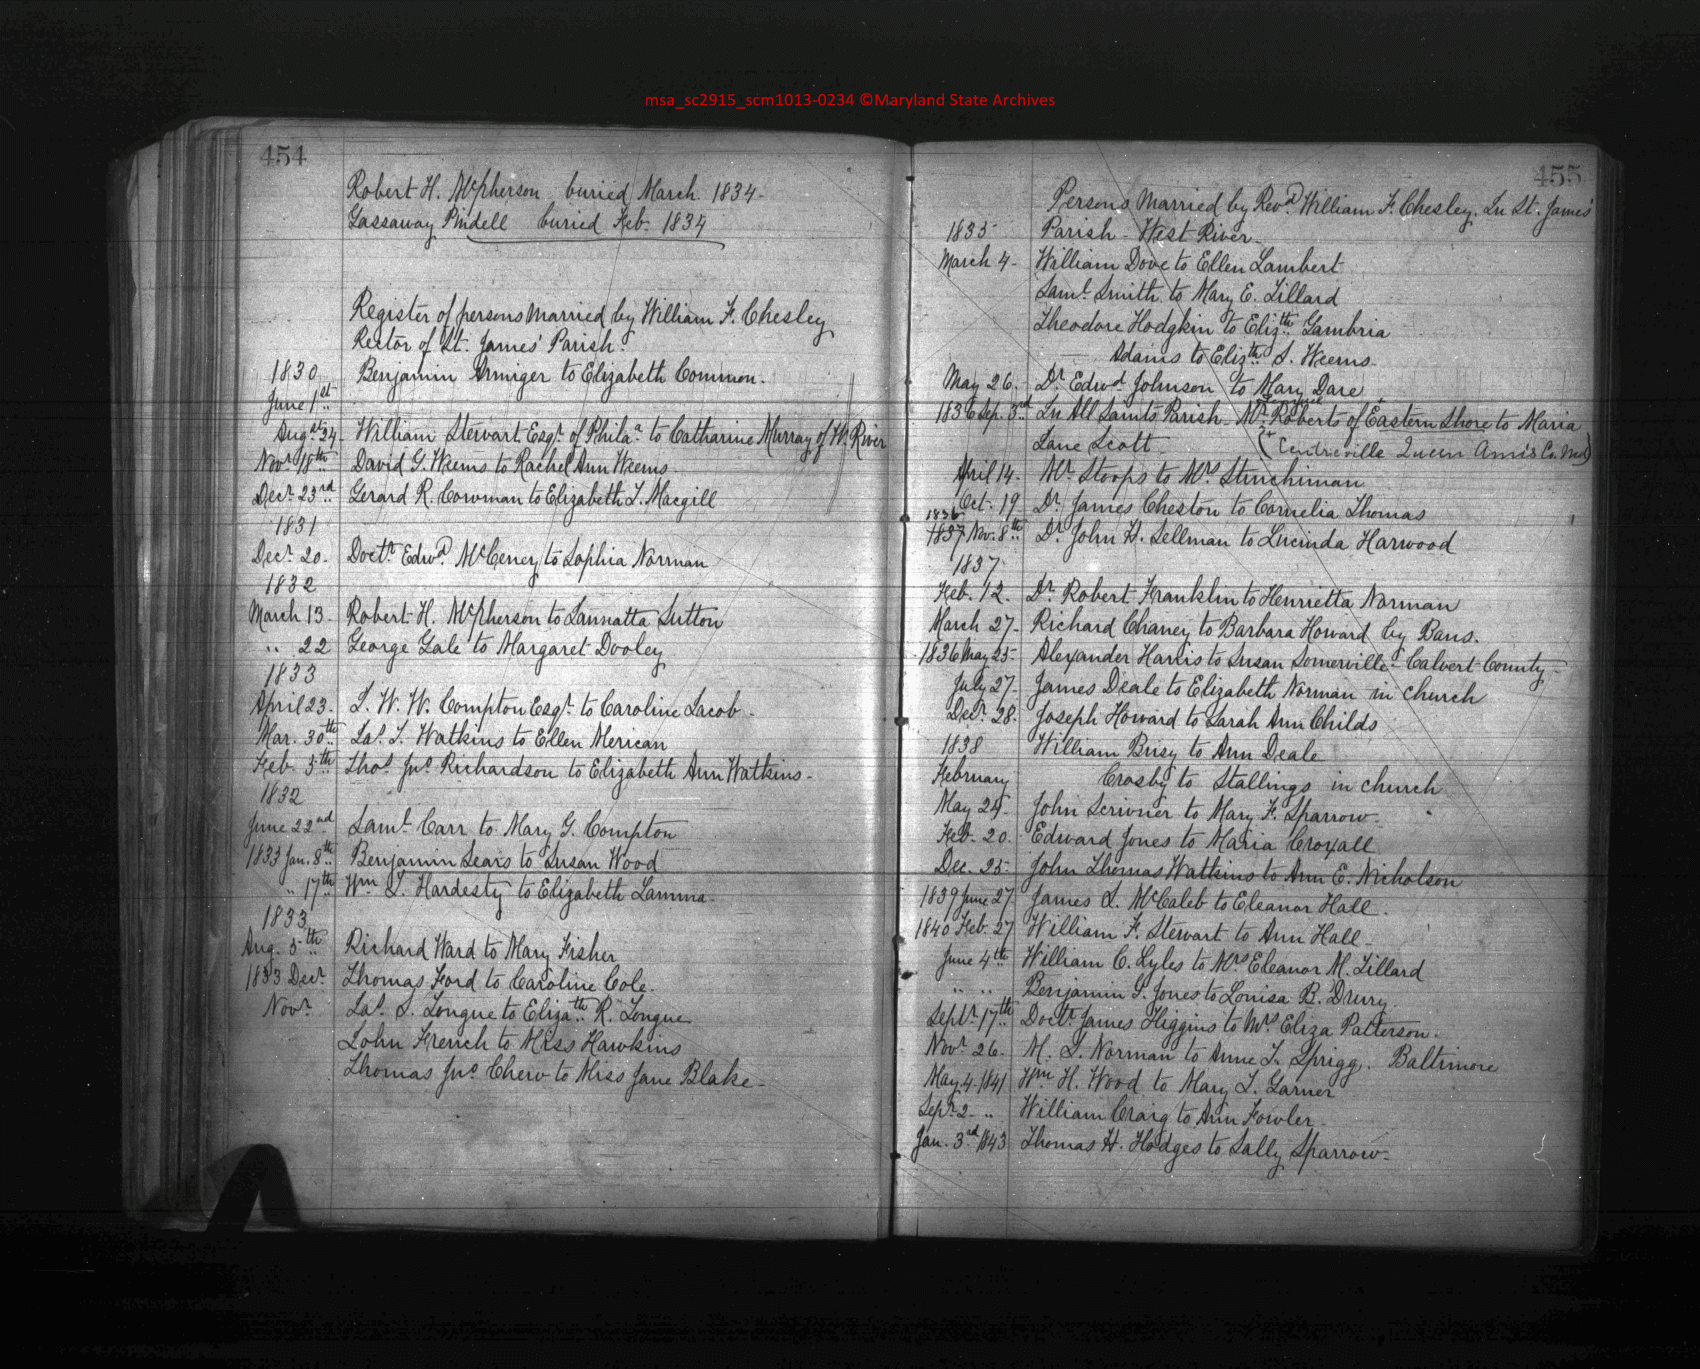 msa_sc2915_scm1013-0234 ©Maryland State Archives
454
Robert H. McPherson buried March 1834-
Gassaway Pindell buried Feb. 1834
Register of persons Married by William F. Chesley
Rector of St. James' Parish.
1830 Benjamin Armiger to Elizabeth Common.
June 1st
Augst 24- William Stewart Esqr. of Phila. to Catharine Murray of W. River
Novr 18th David G. Weems to Rachel Ann Weems-
Decr 23rd Gerard R. Cowman to Elizabeth T. Macgill
1831
Decr 20. Doctr Edwd. McCeney to Sophia Norman
1832
March 13- Robert H. McPherson to Sutton
" 22 George Gale to Margaret Dooley
1833
April 23. W. W. Compton Esqr. to Caroline Jacob.
Mar. 30th Jas. Watkins to Ellen Merican
Feb. 5th Thos Jno Richardson to Elizabeth Ann Watkins-
1832
June 22nd Saml Carr to Mary G. Compton
1833 Jan. 8th Benjamin Sears to Susan Wood
" 17th Wm Hardesty to Elizabeth Lamma.
1833
Aug. 5th Richard Ward to Mary Fisher
1833 Decr Thomas Ford to Caroline Cole.
Novr Tongue to Elizath R. Tongue
John French to Miss Hawkins
Thomas Jno Chew to Miss Jane Blake-
455
Persons Married by Revd. William F. Chesley. In St. James'
1835 Parish - West River-
March 4- William Dove to Ellen Lambert
Saml Smith to Mary E. Tillard
Theodore Hodgkin to Elizth Gambria
Adams to Elizth S. Weems-
May 26. Dr Edwd Johnson to Mary Dare
1836 Sep. 3rd In All Saints Parish- Mr. Roberts of Eastern Shore to Maria
Jane Scott- (+ Centreville Queen Ann's Co. Md)
April 14- Mr Stoops to Mrs Stinchiman
Oct. 19 Dr James Cheston to Cornelia Thomas
1836
1837 Nov. 8th Dr. John H. Sellman to Lucinda Harwood
1837
Feb. 12. Dr Robert Franklin to Henrietta Norman
March 27- Richard Chaney to Barbara Howard by Bans.
1836 May 25- Alexander Harris to Susan Somerville- Calvert County-
July 27- James Deale to Elizabeth Norman in church
Decr 28. Joseph Howard to Sarah Ann Childs
1838 William Brisy to Ann Deale
February Crosby to Stallings in church
May 24 John Scrivner to Mary F. Sparrow-
Feb. 20. Edward Jones to Maria Croxall
Dec. 25- John Thomas Watkins to Ann E. Nicholson
1839 June 27 James McCaleb to Eleanor Hall.
1840 Feb. 27 William F. Stewart to Ann Hall-
June 4th William C. Lyles to Mrs Eleanor M. Tillard
" " Benjamin Jones to Louisa B. Drury.
Septr 17th Doctr James Higgins to Mrs Eliza Patterson.
Novr 26. M. Norman to Anne T. Sprigg. Baltimore
May 4-1841 Wm H. Wood to Mary T. Garner
Sept 2- " William Craig to Ann Fowler-
Jan. 3rd 1843 Thomas H. Hodges to Sally Sparrow-